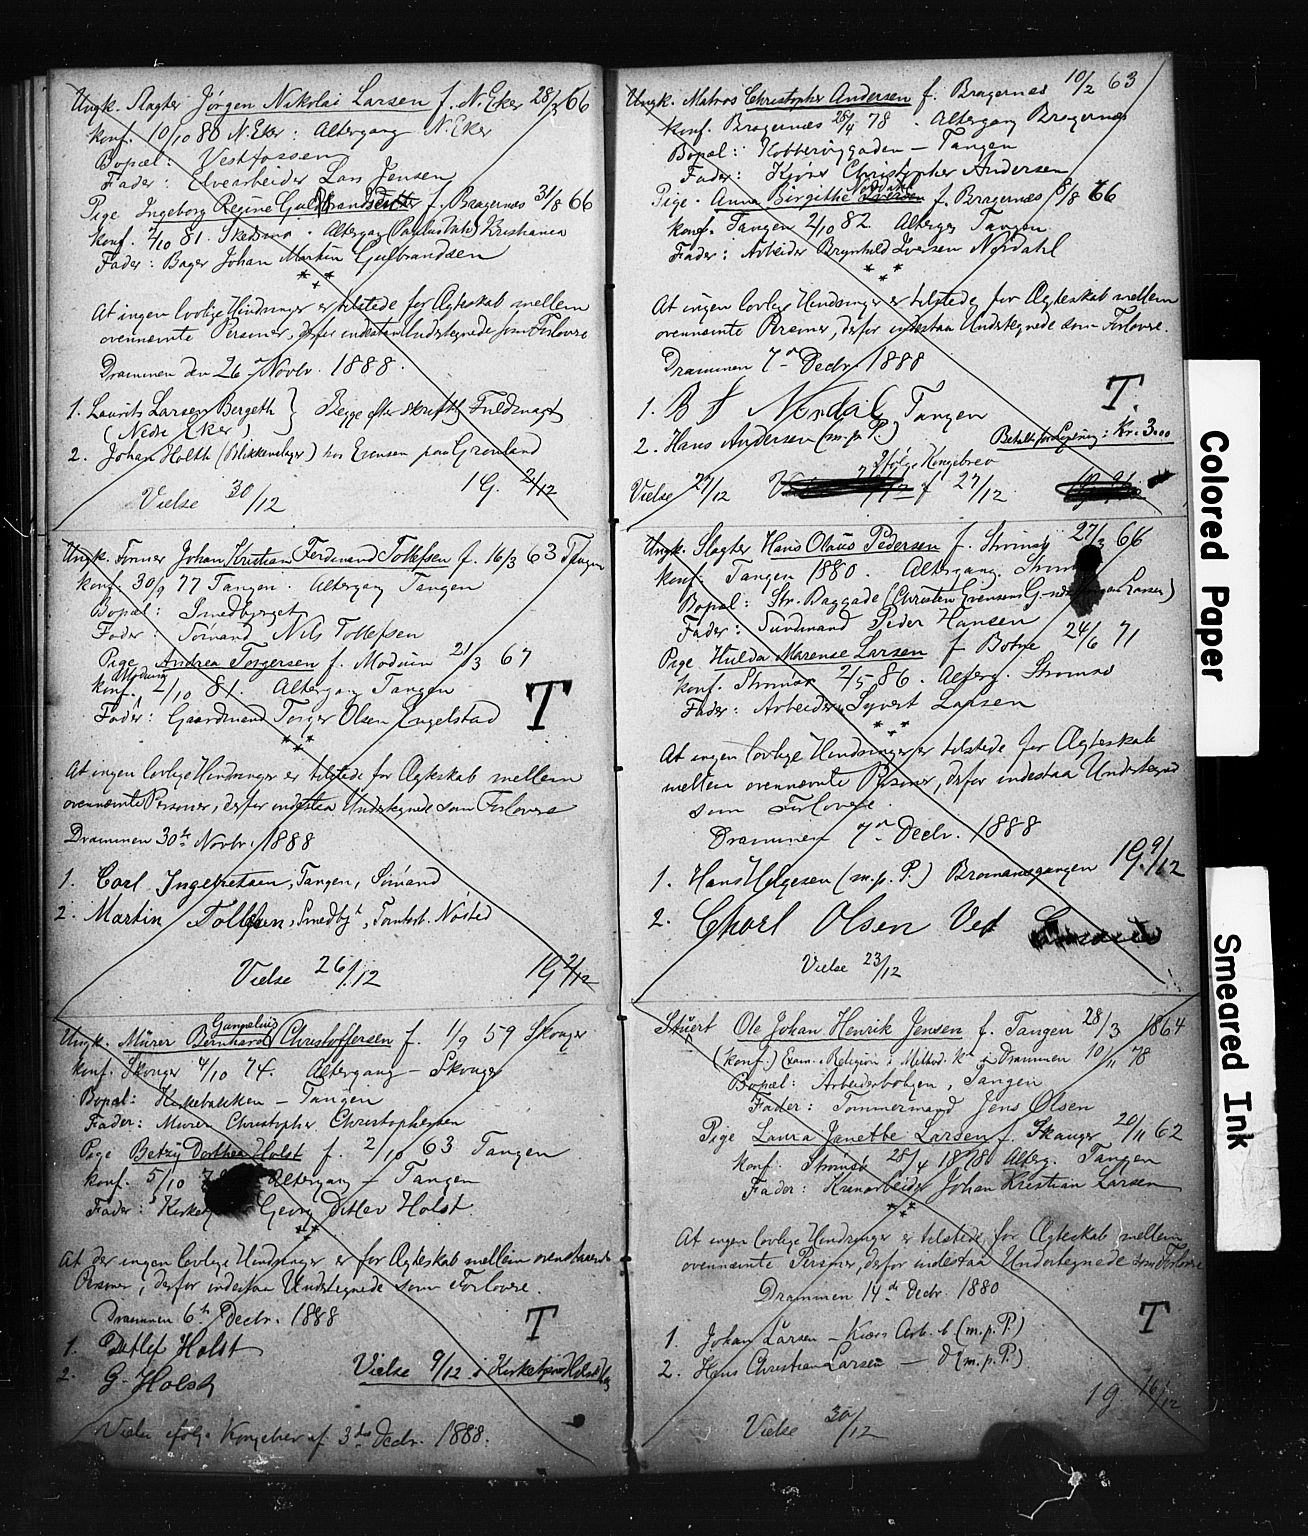 Ungk. Slagter Jörgen Nikolai Larsen f. N. Eker 28/3 66
konf. 10/10 80 N. Eker : Altergang N. Eker
Bopæl: Vestfossen
Fader: Elvearbeider Lars Jensen
Pige Ingeborg Regine f. Bragernæs 31/8 66
konf. 2/10 81. Skedsmo . Altergang Kristiania
Fader: Bager Johan Martin Gulbrandsen
At ingen lovlige Hindringer er tilstede for Ægteskab mellem
ovennævnte Personer, derfor indestaa Undertegnede som Forlovere
Drammen den 26 Novbr. 1888.
1. Laurits Larsen Bergeth } Begge efter skriftl. Fuldmagt
(Nedre Eker)
2. Johan Holth (Blikkenslager) hos Evensen paa Grønland
Vielse 30/12 1 G. 2/12
Ungk. Former Johan Kristian Ferdinand Tollefsen f. 16/3 63 Tangen
konf. 30/9 77 Tangen. Altergang Tangen
Bopæl: Smedbjerget
Fader: Sömand Nils Tollefsen
Pige Andrea Torgersen f. Modum 21/3 67
Modum
konf. 2/10 81. Altergang Tangen
Fader: Gaardmand Torger Olsen Engelstad T
At ingen lovlige Hindringer er tilstede for Ægteskab mellem
ovennævnte Personer, derfor indestaa Undertegnede som Forlovere
Drammen 30te Novbr. 1888
1. Carl Ingebretsen, Tangen, Sömand
2. Martin Tollefsen, Smedbjt,
Vielse 26/12 1 G 2/12
Gunnelius
Ungk. Murer Bernhard Christoffersen f. 1/9 59 Skouger
konf. Skouger 4/10 74. Altergang – Skouger
Bopæl: Kirkebakken – Tangen
Fader: Murer Christopher Christophersen
Pige Betzy Dorthea Holst f. 2/10 63 Tangen
konf. 5/10 Altergang – Tangen
Fader: Georg Ditlev Holst
At der ingen lovlige Hindringer er for Ægteskab mellem ovenstaaende
Personer, derfor indestaa Undertegnede som Forlovere.
Drammen 6te Decbr. 1888 T
1. Detlef Holst
2. G. Holst Vielse 9/12 i Kirken
Vielse ifølge Kongebrev af 3die Decbr. 1888.
Ungk. Matros Christopher Andersen f. Bragernæs 10/2 63
konf. Bragernæs 28/4 78 . Altergang Bragernæs
Bopæl: – Tangen
Fader: Christopher Andersen
Nordahl
Pige. Anna Birgithe Iversen f. Bragernæs 8/8 66
konf. Tangen 2/10 82 Alterg. Tangen.
Fader: Arbeider Brynhild Iversen Nordahl
At ingen lovlige Hindringer er tilstede for Ægteskab mellem
ovennævnte Personer, derfor indestaa Undertegnede som Forlovere.
Drammen 7de Decbr. 1888
T.
1. B I Nordal Tangen
2. Hans Andersen (m. p. P.) Betalt for Lysning: Kr. 3.00
Ifølge Kongebrev
Vielse 27/12 f 27/12
Ungk. Slagter Hans Olaus Pedersen f. Strömsö 27/3 66
konf. Tangen 1880. Altergang
Bopæl: Str. Baggade (Christen Evensens Larsen)
Fader: Peder Hansen
Pige Hulda Marense Larsen f Botne 24/6 71
konf. Strömsö 2/5 86. Alterg. Strömsö
Fader: Arbeider Syvert Larsen
At ingen lovlige Hindringer er tilstede for Ægteskab
mellem ovennævnte Personer, derfor indestaa Undertegnede
som Forlovere.
Drammen 7de Decbr. 1888
1 G. 9/12
1. Hans Helgesen (m. p. P.)
2. Charl Olsen Ved
Vielse 23/12
Stuert Ole Johan Henrik Jensen f. Tangen 28/3 1864
(konf.) Exam. i Religion i Drammen 10/11 78
Bopæl: Arbeiderboligen, Tangen
Fader: Tømmermand Jens Olsen
Pige Laura Janette Larsen f. Skauger 20/11 62
konf. Strömsö 28/4 1878 Alterg. Tangen
Fader: Kranarbeider Johan Kristian Larsen
At ingen lovlige Hindringer er tilstede for Ægteskab mellem
ovennævnte Personer, derfor indestaa Undertegnede som Forlovere
Drammen 14de Decbr. 1880
T
1. Johan Larsen – (m. p. P.)
2. Hans Christian Larsen – do (m. p. P.)
1 G. 16/12
Vielse 30/12
Colored Paper
Smeared Ink